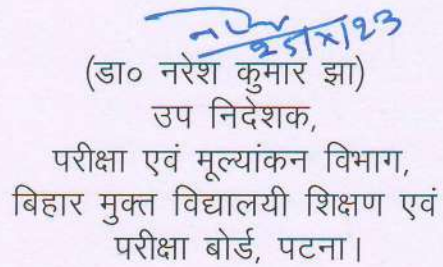 25/X/23
(डा० नरेश कुमार झा)
उप निदेशक,
परीक्षा एवं मूल्यांकन विभाग,
बिहार मुक्त विद्यालयी शिक्षण एवं
परीक्षा बोर्ड, पटना।